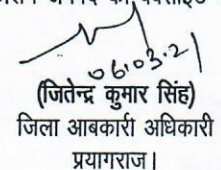 06.03.21
(जितेन्द्र कुमार सिंह)
जिला आबकारी अधिकारी
प्रयागराज।